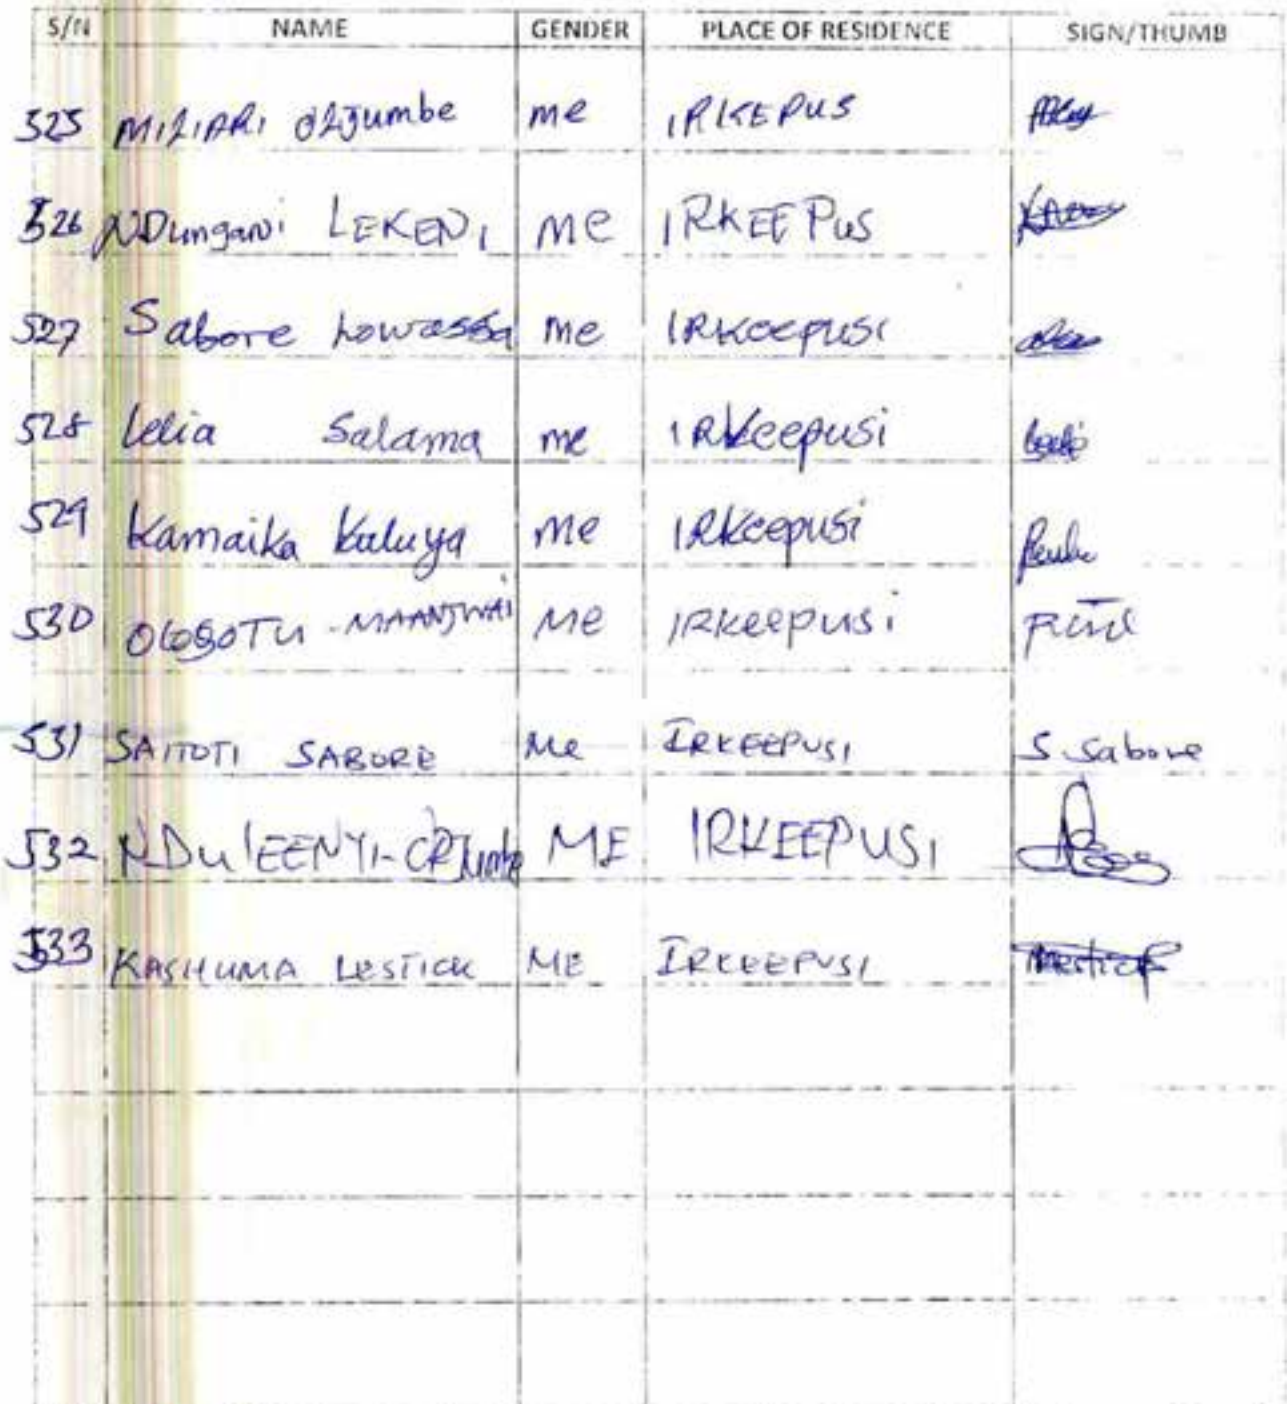 S/N NAME GENDER PLACE OF RESIDENCE SIGN/THUMB
525 MILIARI OLJumbe me IRKEPUS
526 NDungani LEKENI me IRKEEPus
527 Sabore Lowassa me IRKeepusi
528 Lelia Salama me IRKeepusi
529 Kamaika Kuluya me IRKeepusi
530 OLOSOTU - MAANJWAI Me IRKeepusi
531 SAITOTI SABORE Me IRKEEPUSI S. Sabore
532 NDuLEENYI-ORJumbe ME IRKEEPUSI
533 KASHUMA LESTICK ME IRKEEPUSI